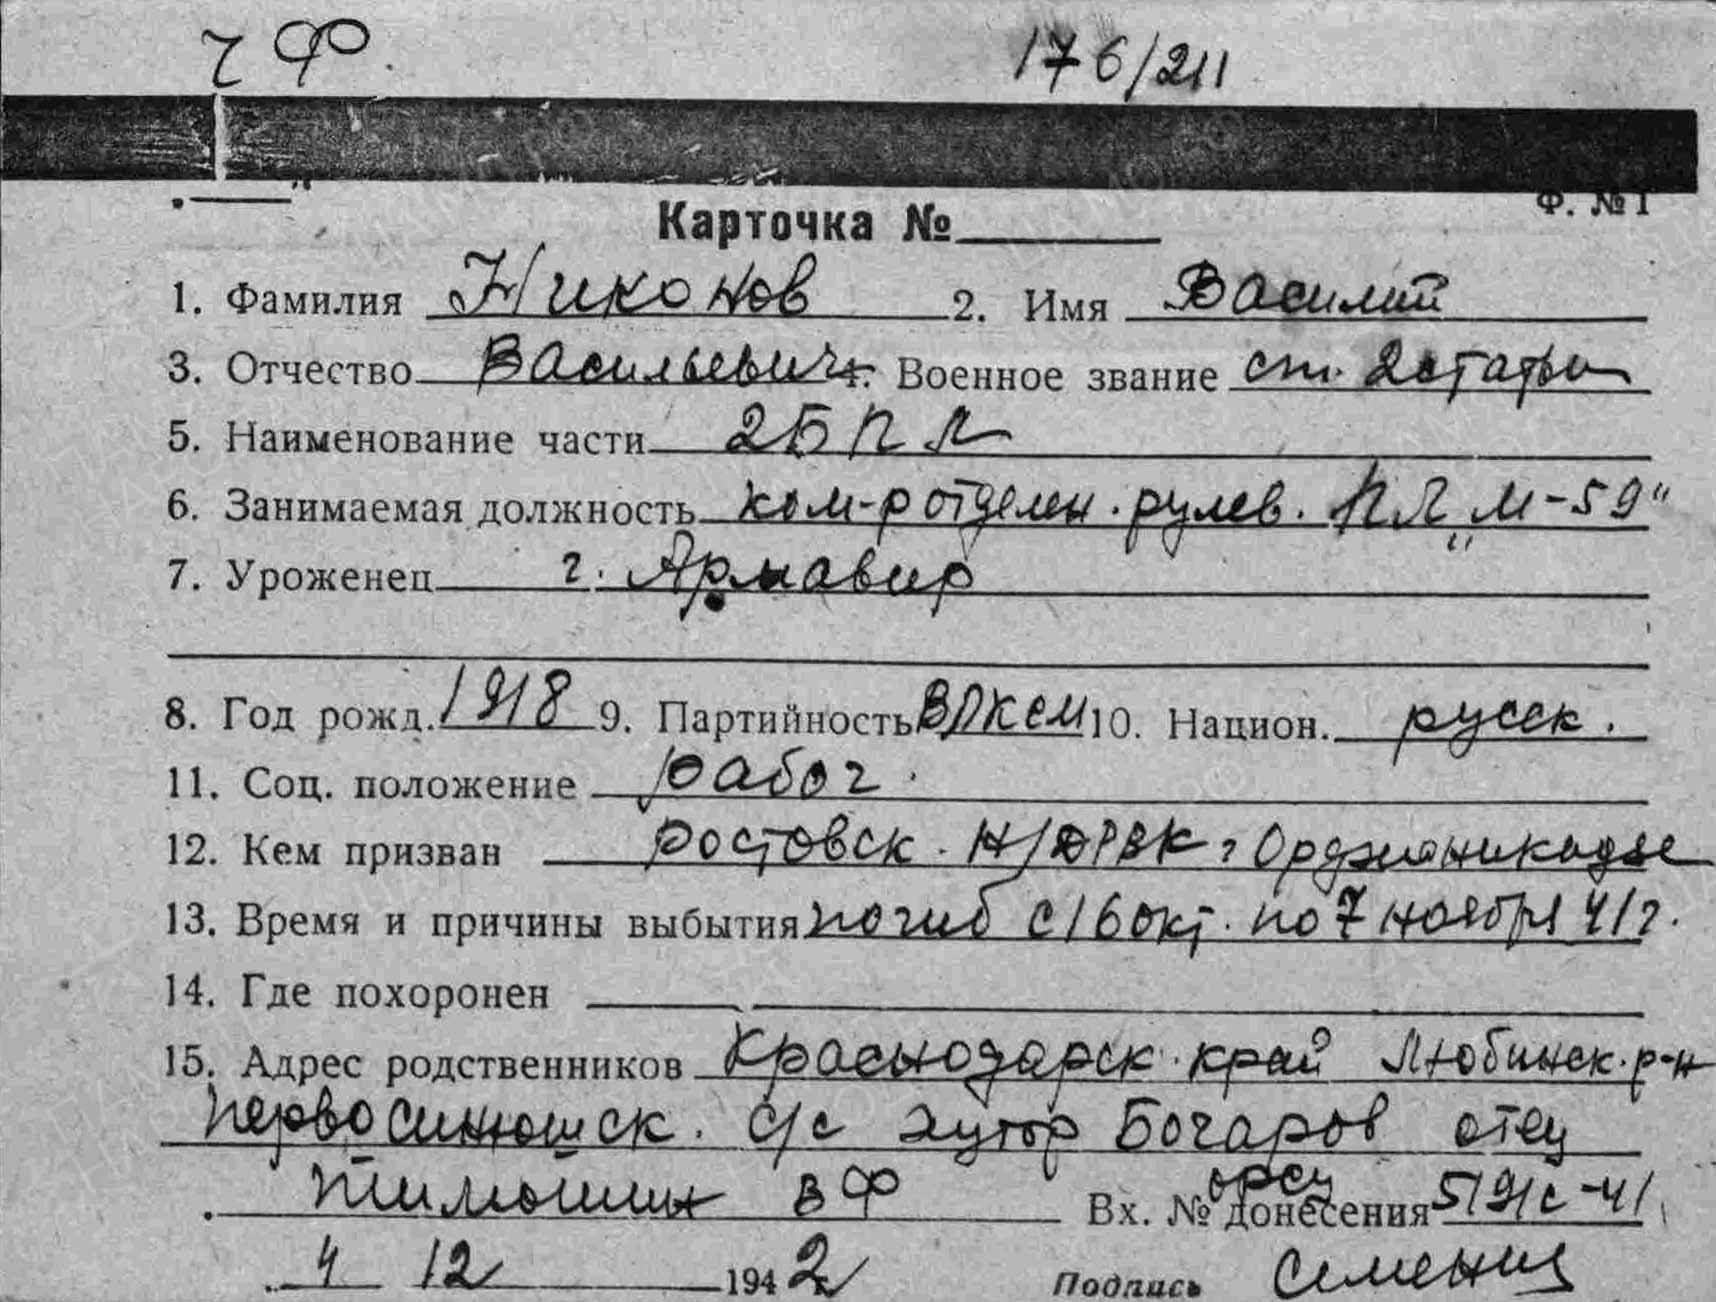 ч Ф.
176/211
Ф. № 1
Карточка №
1. Фамилия Никонов 2. Имя Василий
3. Отчество Васильевич 4. Военное звание ст. 2 статьи
5. Наименование части 2БПЛ
6. Занимаемая должность ком-р отделен. рулев. ПЛ „М-59"
7. Уроженец г. Армавир
8. Год рожд. 1918 9. Партийность ВЛКСМ 10. Национ. русск.
11. Соц. положение рабоч.
12. Кем призван Ростовск. Н/Д РВК г Орджоникидзе
13. Время и причины выбытия погиб с 16 окт. по 7 ноября 41г.
14. Где похоронен
15. Адрес родственников Краснодарск. край Любинск. р-н
Первосинюшск. с/с хутор Бочаров отец
Тимошин ВФ Вх. № донесения орсу 519/с-41
4 12 1942 Подпись